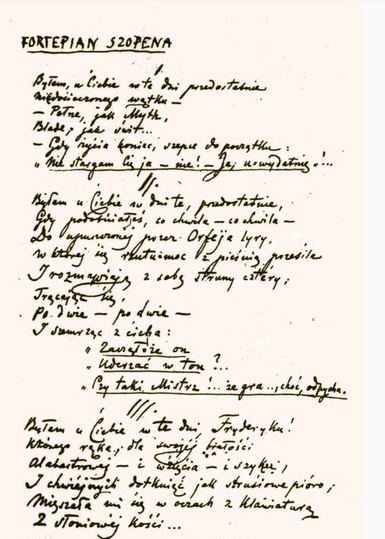 FORTEPIAN SZOPENA
I
Byłem u Ciebie w te dni przedostatnie
Niedocieczonego wątku —
— Pełne, jak Mythe,
Blade, jak świt...
— Gdy życia koniec szepce do początku:
„Nie stargam Cię ja — nie! — Ja, u-wydatnię!...
II.
Byłem u Ciebie w dni te, przedostatnie,
Gdy podobniałeś, co chwila — co chwila —
Do upuszczonej przez Orfeja liry,
W której się rzutu-moc z pieśnią przesila
I rozmawiają z sobą struny cztéry,
Trącając się,
Po dwie — po dwie —
I szemrząc z cicha:
„Zacząłże on
„Uderzać w ton?...
„Czy taki Mistrz!... że gra... choć, odpycha.
III.
Byłem u Ciebie w te dni Fryderyku!
Którego ręka, dla swojéj białości
Alabastrowej — i wzięcia — i szyku,
I chwiejnych dotknięć jak strusiowe pióro,
Mięszała mi się w oczach z klawiaturą
Z słoniowej kości...